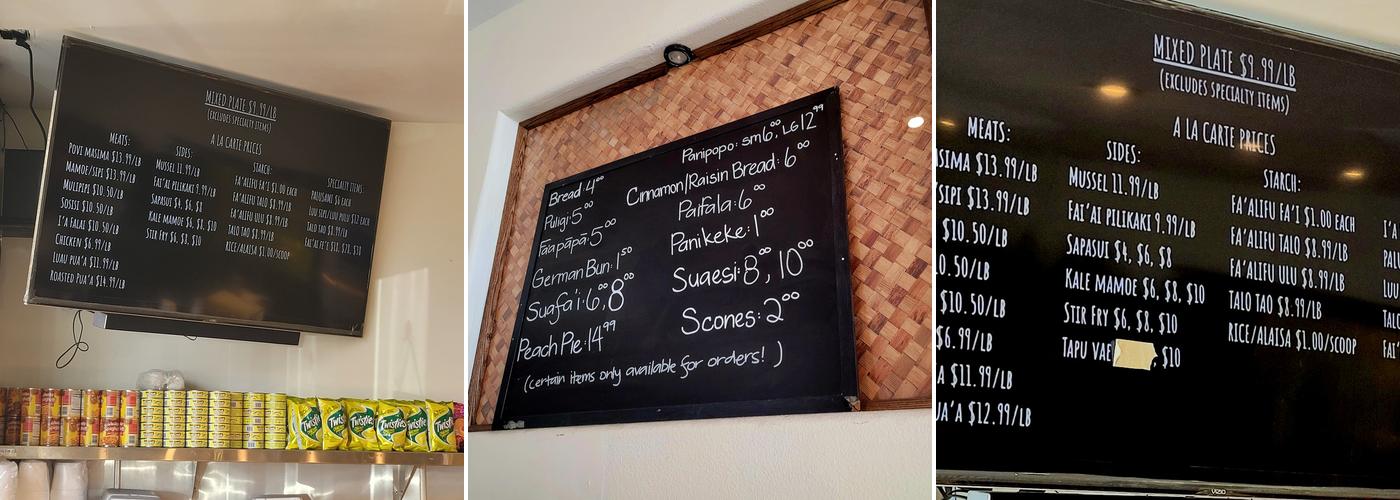 MIXED PLATE $9.99/LB
(EXCLUDES SPECIALTY ITEMS)
A LA CARTE PRICES
MEATS:
POVI MASIMA $13.99/LB
MAMOE/SIPI $13.99/LB
MULIPIPI $10.50/LB
SOSISI $10.50/LB
I'A FALAI $10.50/LB
CHICKEN $6.99/LB
LUAU PUA'A $11.99/LB
ROASTED PUA'A $14.99/LB
SIDES:
MUSSEL 11.99/LB
FAI'AI PILIKAKI 9.99/LB
SAPASUI $4, $6, $8
KALE MAMOE $6, $8, $10
STIR FRY $6, $8, $10
STARCH:
FA'ALIFU FA'I $1.00 EACH
FA'ALIFU TALO $8.99/LB
FA'ALIFU ULU $8.99/LB
TALO TAO $8.99/LB
RICE/ALAISA $1.00/SCOOP
SPECIALTY ITEMS:
PALUSAMI $6 EACH
LUU SIPI/LUU PULU $12 EACH
TALO TAO $8.99/LB
Twisties
Twisties
Twisties
Twisties
Twisties
Bread: 4.00
Puligi: 5.00
Faapāpā: 5.00
German Bun: 1.50
Suafa'i: 6.00, 8.00
Peach Pie: 14.99
Panipopo: sm 6.00, LG 12.99
Cinnamon/Raisin Bread: 6.00
Paifala: 6.00
Panikeke: 1.00
Suaesi: 8.00, 10.00
Scones: 2.00
(certain items only available for orders!)
MIXED PLATE $9.99/LB
(EXCLUDES SPECIALTY ITEMS)
A LA CARTE PRICES
MEATS:
SIMA $13.99/LB
SIPI $13.99/LB
$10.50/LB
0.50/LB
$10.50/LB
$6.99/LB
A $11.99/LB
UA'A $12.99/LB
SIDES:
MUSSEL 11.99/LB
FAI'AI PILIKAKI 9.99/LB
SAPASUI $4, $6, $8
KALE MAMOE $6, $8, $10
STIR FRY $6, $8, $10
TAPU VAE , $10
STARCH:
FA'ALIFU FA'I $1.00 EACH
FA'ALIFU TALO $8.99/LB
FA'ALIFU ULU $8.99/LB
TALO TAO $8.99/LB
RICE/ALAISA $1.00/SCOOP
I'A
PALU
LUU
TALO
FAI'
VIZIO